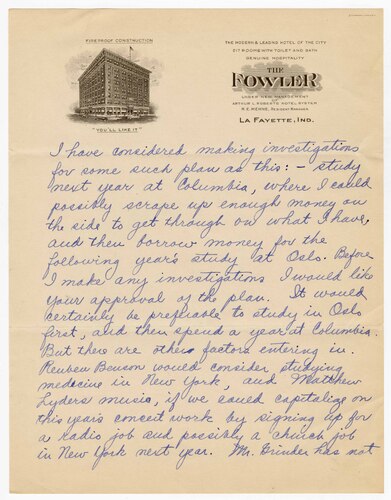 FIREPROOF CONSTRUCTION
"YOU'LL LIKE IT"
THE MODERN & LEADING HOTEL OF THE CITY
217 ROOMS WITH TOILET AND BATH
GENUINE HOSPITALITY
THE
FOWLER
UNDER NEW MANAGEMENT
ARTHUR L. ROBERTS HOTEL SYSTEM
R. E. WEHNE, RESIDENT MANAGER
LA FAYETTE, IND.
I have considered making investigations
for some such plan as this: – study
next year at Columbia, where I could
possibly scrape up enough money on
the side to get through on what I have,
and then borrow money for the
following year's study at Oslo. Before
I make any investigations I would like
your approval of the plan. It would
certainly be preferable to study in Oslo
first, and then spend a year at Columbia.
But there are other factors entering in.
Reuben Benson would consider studying
medecine in New York, and Matthew
Lyders music, if we could capitalize on
this year's concert work by signing up for
a radio job and possibly a church job
in New York next year. Mr. Grinder has not